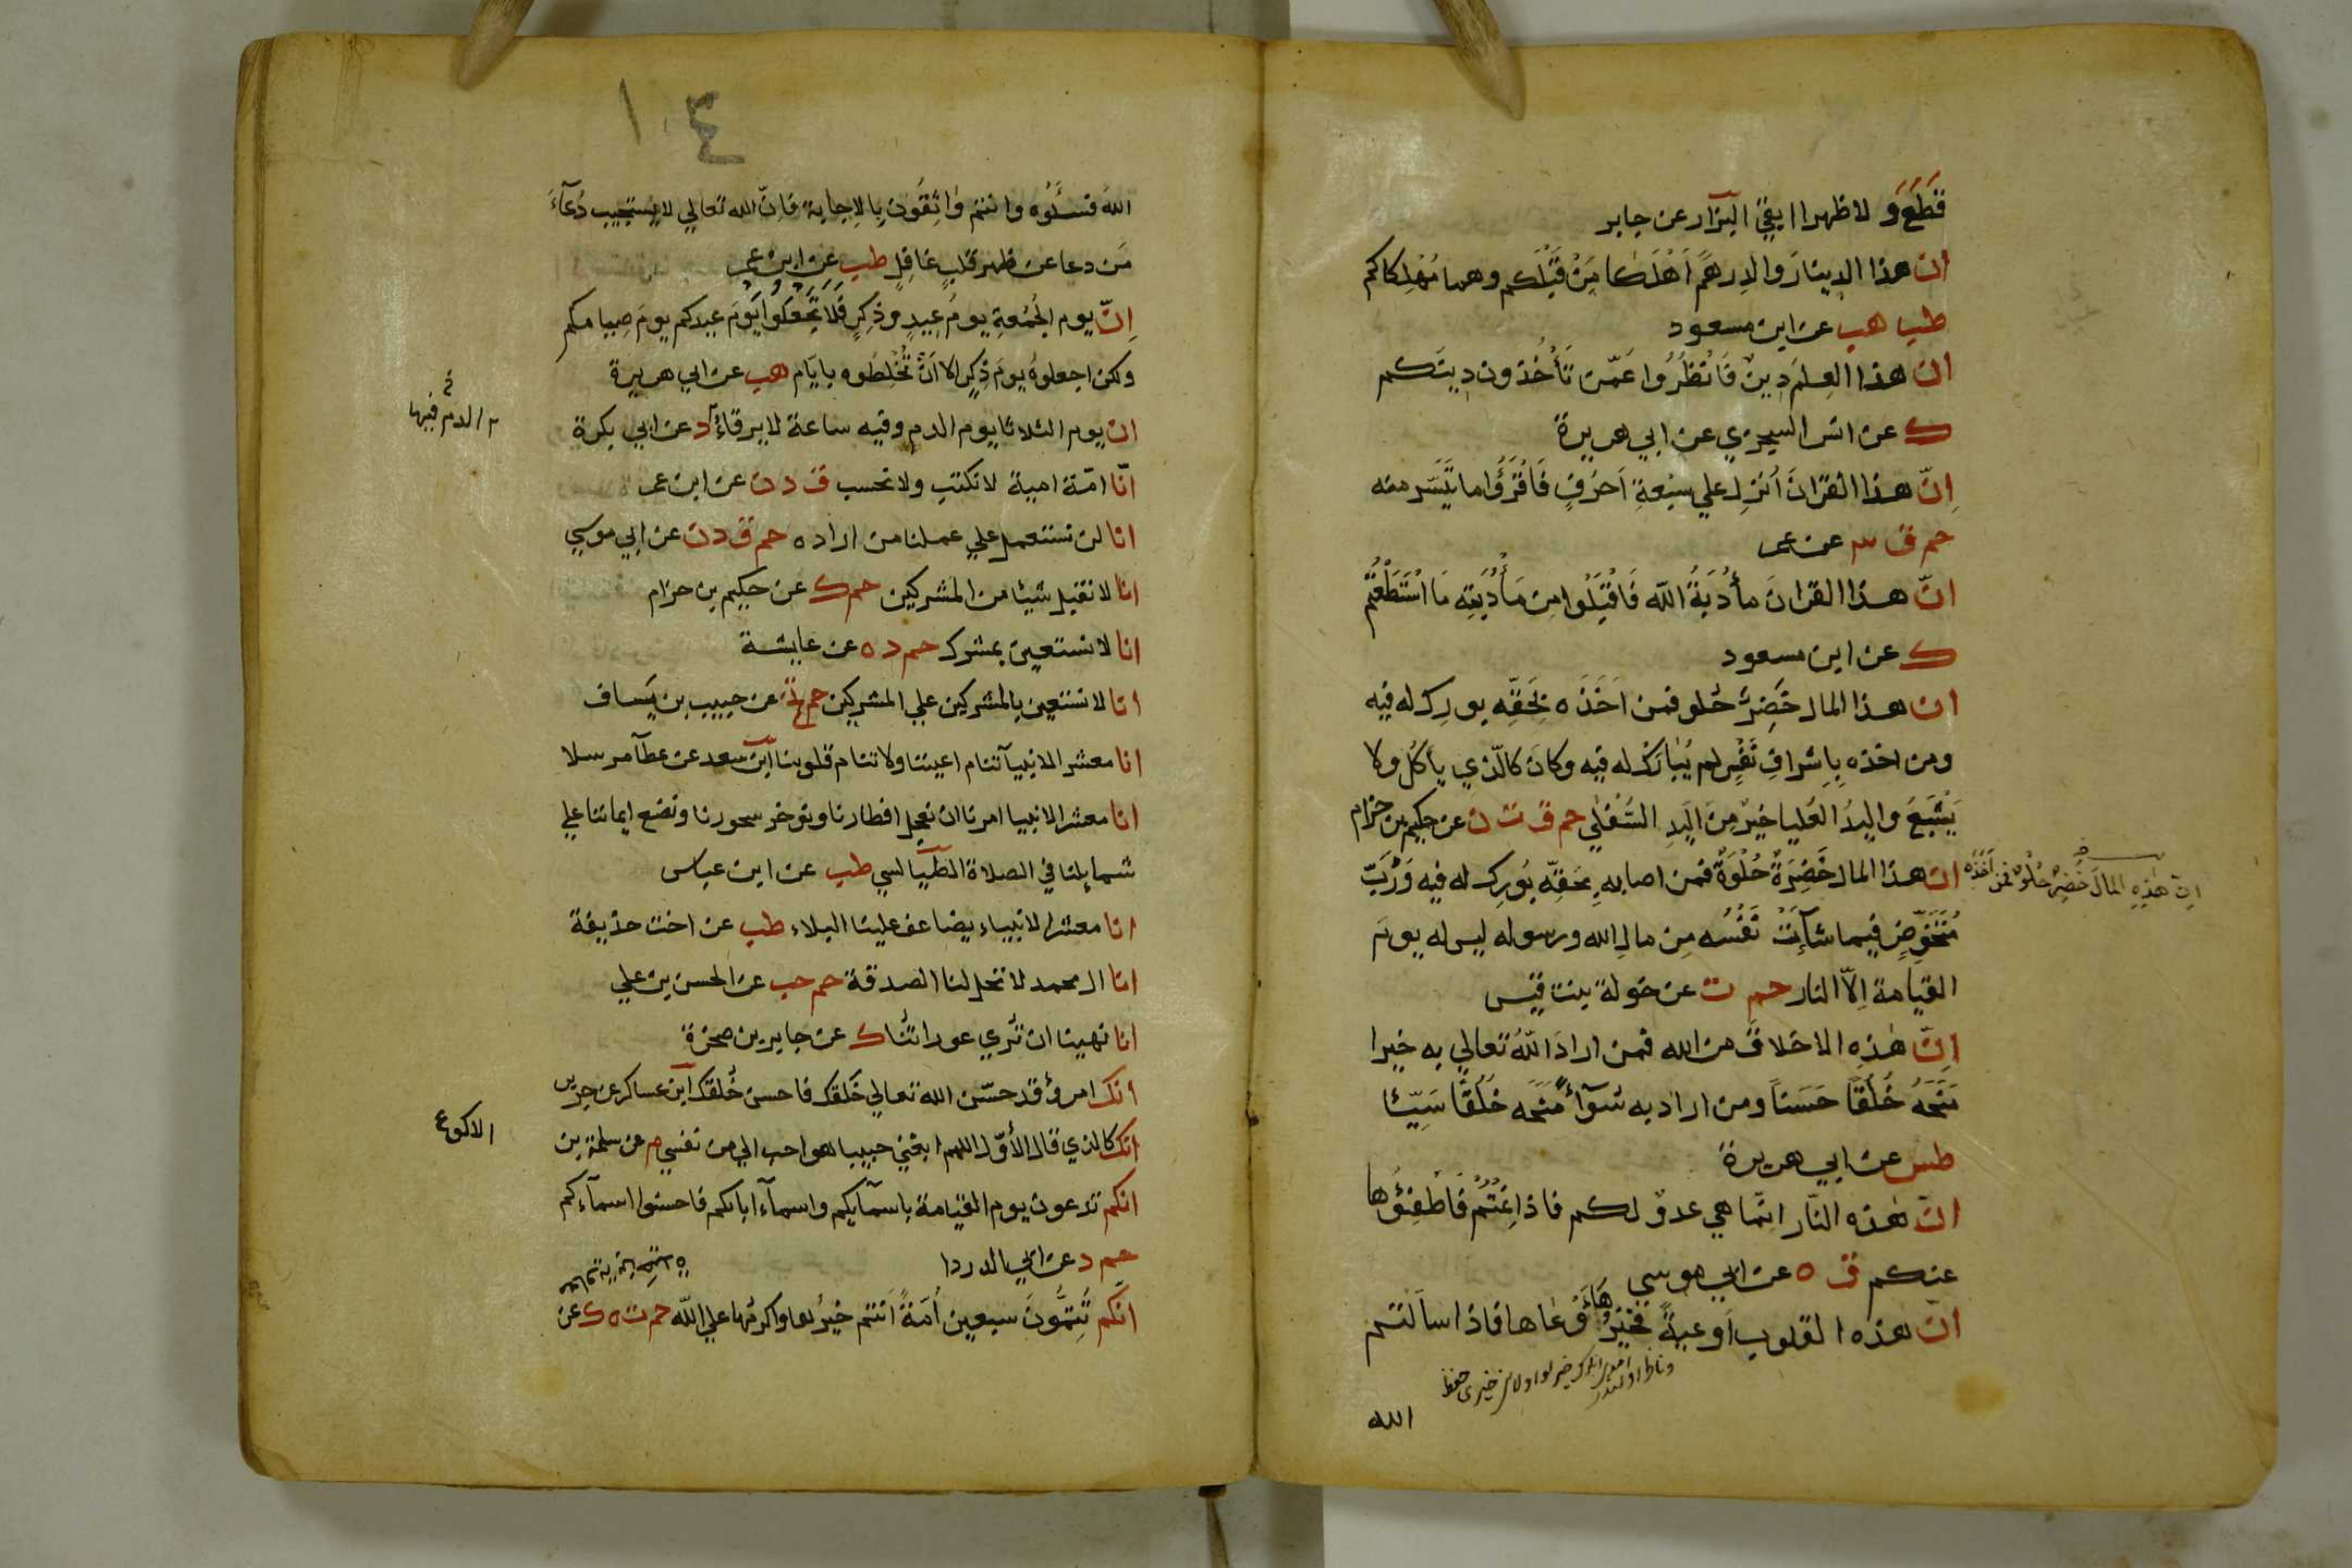 قَطَعَ وَلا ظهرا ابقى البزار عن جابر
ان هذا الدينارَ والدِرهَمَ اَهْلَكا مَنْ قَبْلَكم وهما مُهْلِكاكم
طب هب عن ابن مسعود
ان هذا العِلمَ دِينٌ فَانْظُرُوا عَمّن تَأْخُذون دِينَكم
ك عن انس السجزي عن ابي هريرة
اِنّ هذا القرانَ اُنزِل علي سبعةِ اَحرُفٍ فَاقْرَؤُا ما تَيَسَّر منه
حم ق ٣ عن عمر
انّ هذا القرانَ مأدُبَةُ اللّه فَاقْبَلُوا مِن مَأْدُبَتِه مَا اسْتَطَعْتُم
ك عن ابن مسعود
ان هذا المال خَضِرٌ حُلو فمن اَخَذَه بِحَقِّه بورِك له فيه
ومن اخذه بِاِشرافِ نَفْسٍ لم يُبَارَكْ له فيه وكان كالّذي ياكُل ولا
يَشْبَعُ واليدُ العُليا خيرٌ مِنَ اليَدِ السُّفْلي حم ق ت ن عن حكيم بن حزام
ان هذا المال خَضِرَةٌ حُلْوَةٌ فمن اصابه بِحَقِّه بُورِك له فيه وَرُبَّ
اِنّ هٰذِهِ المالَ خَضِرة حُلْوة فمن اَخَذَه
مُتَخَوِّضٍ فيما شآئَتْ نَفْسُه مِن مالِ الله ورسوله ليس له يومَ
القيامة اِلاّ النار حم ت عن خولة بنت قيس
اِنّ هٰذِه الاخلاقَ من الله فمن ارادَ اللّهُ تعالي به خيرا
مَنَحَهُ خُلُقًا حَسَنًا ومن اراد به سُوآءً مَنَحَه خُلُقًا سَيّئا
طس عن ابي هريرة
انّ هٰذه النّار انّما هي عدوّ لكم فاذا نِمْتُم فَاطْفِئُوها
عنكم ق ه عن ابي موسي
انّ هذه القلوبَ اَوعيةٌ فخَيْرُهَا اَوْعَاها فاذا سالتم
الله
١٠٤
اللهَ فسْئَلُوه وانتم وَاثِقُونَ بِالاِجابة فاِنّ الله تعالي لا يستجيب دُعآءَ
مَن دعا عن ظهر قلبٍ غافِلٍ طب عن ابن عمر
اِنّ يوم الجُمُعةِ يومُ عِيدٍ وذِكرٍ فَلا تَجْعَلوا يَوْمَ عيدكم يومَ صِيامكم
ولكن اجعلوهُ يومَ ذِكرٍ الا اَنْ تَخْلِطُوه بايّام هب عن ابي هريرة
ان يوم الثلاثا يوم الدم وفيه ساعة لا يرقاءُ د عن ابي بكرة
الدم فيها
انّا امّة امية لا نكتب ولا نحسب ق د ن عن ابن عمر
انا لن نستعمل علي عملنا من اراده حم ق د ن عن ابي موسي
انا لا نقبل شيئا من المشركين حم ك عن حكيم بن حزام
انا لا نستعين بمشرك حم د ه عن عايشة
انا لا نستعين بالمشركين علي المشركين حم تخ عن حبيب بن يَساف
انا معشر الانبيآ تنام اعيننا ولا تنام قلوبنا ابن سعد عن عطآ مرسلا
انا معشر الانبيا امرنا ان نعجل افطارنا ونوخر سحورنا ونضع ايماننا علي
شمايلنا في الصلاة الطيالسي طب عن ابن عباس
انا معشر الانبياء يضاعف علينا البلاء طب عن اخت حذيفة
انا ال محمد لا تحل لنا الصدقة حم حب عن الحسن بن علي
انا نهينا ان تُري عوراتُنا ك عن جابر بن صخرة
انك امرؤ قد حسّن الله تعالي خَلقك فاحسن خُلقك ابن عساكر عن جرير
انك كالذي قال الأوّل اللهم ابغني حبيبا هو احب الي من نفسي م عن سلمة بن
الاكوع
انكم تدعون يوم القيامة باسمآيكم واسمآء ابايكم فاحسنوا اسمآءكم
حم د عن ابي الدردا
انّكم تُتِمُّونَ سبعين اُمّةً اَنتم خيرُها واكرمُها علي اللّه حم ت ه ك عن